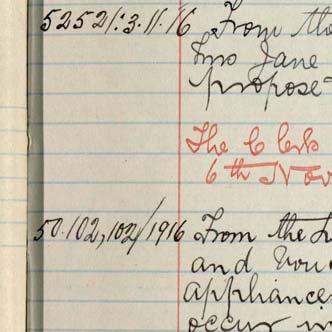 5252/:3.11.16 From the
Mrs Jane
propose
The Clerk
6th Nov
50.102,102/1916 From the
and
appliances
occur in